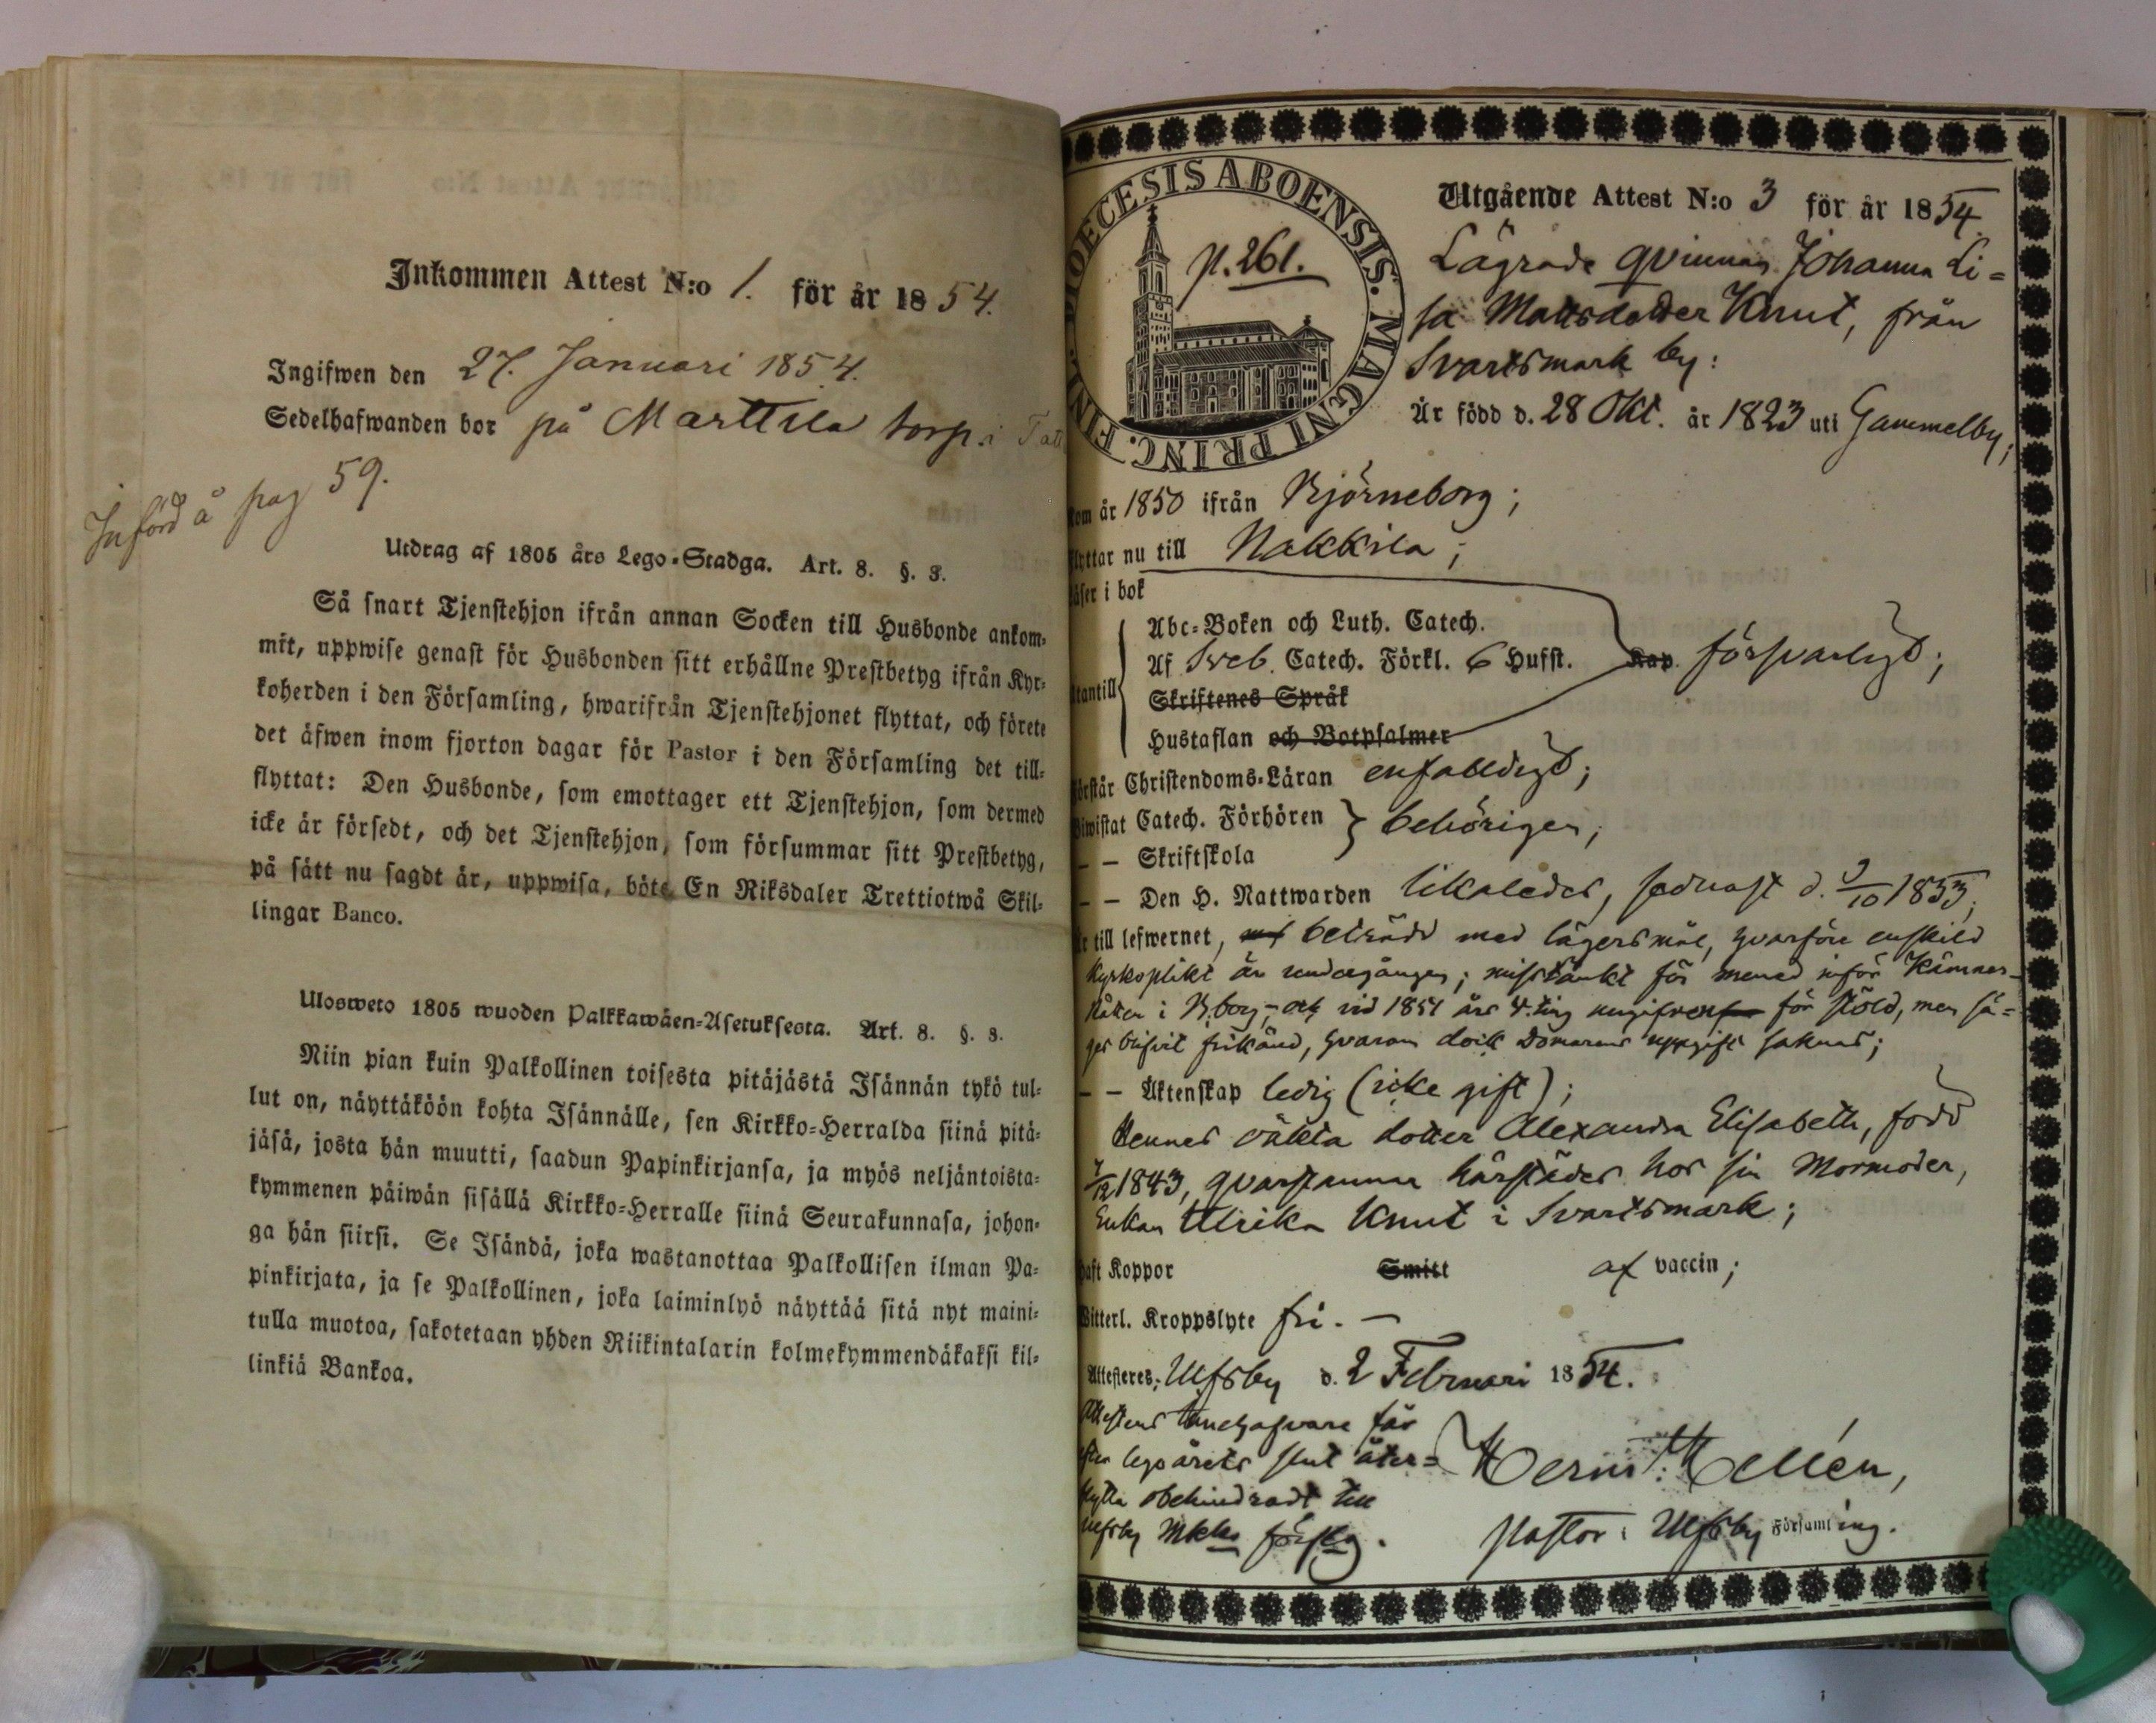 Inkommen Attest N:o 1. för år 1854.
Ingifwen den 27. Januari 1854.
Sedelhafwanden bor på Marttila torp i
Införd å pag 59.
Utdrag af 1805 års Lego-Stadga. Art. 8. §. 3.
Så snart Tjenstehjon ifrån annan Socken till Husbonde ankom-
mit, uppwise genast för Husbonden sitt erhållne Prestbetyg ifrån Kyr-
koherden i den Församling, hwarifrån Tjenstehjonet flyttat, och förete
det äfwen inom fjorton dagar för Pastor i den Församling det till-
flyttat: Den Husbonde, som emottager ett Tjenstehjon, som dermed
icke är försedt, och det Tjenstehjon, som försummar sitt Prestbetyg,
på sätt nu sagdt är, uppwisa, böte En Riksdaler Trettiotwå Skil-
lingar Banco.
Ulosweto 1805 wuoden Palkkawäen-Asetuksesta. Art. 8. §. 3.
Niin pian kuin Palkollinen toisesta pitäjästä Isännän tykö tul-
lut on, näyttäköön kohta Isännälle, sen Kirkko-Herralda siinä pitä-
jäsä, josta hän muutti, saadun Papinkirjansa, ja myös neljäntoista-
kymmenen päiwän sisällä Kirkko-Herralle siinä Seurakunnasa, johon-
ga hän siirsi. Se Isändä, joka wastanottaa Palkollisen ilman Pa-
pinkirjata, ja se Palkollinen, joka laiminlyö näyttää sitä nyt maini-
tulla muotoa, sakotetaan yhden Riikintalarin kolmekymmendäkaksi kil-
linkiä Bankoa.
DIOECESIS ABOENSIS. MAGNI PRINC. FINL.
p. 261.
Utgående Attest N:o 3 för år 1854.
Lägrade qvinnan Johanna Li=
sa Mattsdotter Knut, från
Svartsmark by:
Är född d. 28 Okt. år 1823 uti Gammelby;
kom år 1850 ifrån Björneborg;
flyttar nu till Nakkila;
läser i bok
Abc-Boken och Luth. Catech.
Af Sveb. Catech. Förkl. 6 Hufst. Kap. försvarligt;
utantill
Skriftenes Språk
Hustaflan och Botpsalmer
förstår Christendoms-Läran enfalldigt;
Biwistat Catech. Förhören } behörigen;
– – Skriftskola
– – Den H. Nattwarden likaledes, sednast d. 9/10 1853;
Är till lefwernet, beträdd med lägersmål, hvarföre enskild
kyrkoplikt är undergången; misstänkt för mened inför Kämners-
Rätten i B.borg, och vid 1851 års V.ting angifven för stöld, men sä=
ges blifvit frikänd, hvarom dock Domarens uppgift saknas;
– – Äktenskap ledig (icke gift);
Hennes oäkta dotter Alexandra Elisabeth, född
7/12 1843, qvarstannar härstädes hos sin Mormoder,
Enkan Ulrika Knut i Svartsmark;
haft Koppor Smitt af vaccin;
Witterl. Kroppslyte fri. –
Attesteres; Ulfsby d. 2 Februari 1854.
Attestens innehafvare får
efter legoårets slut åter=
flytta obehindradt till
Ulfsby förslg.
Herm: Hellén,
Pastor i Ulfsby Församling.